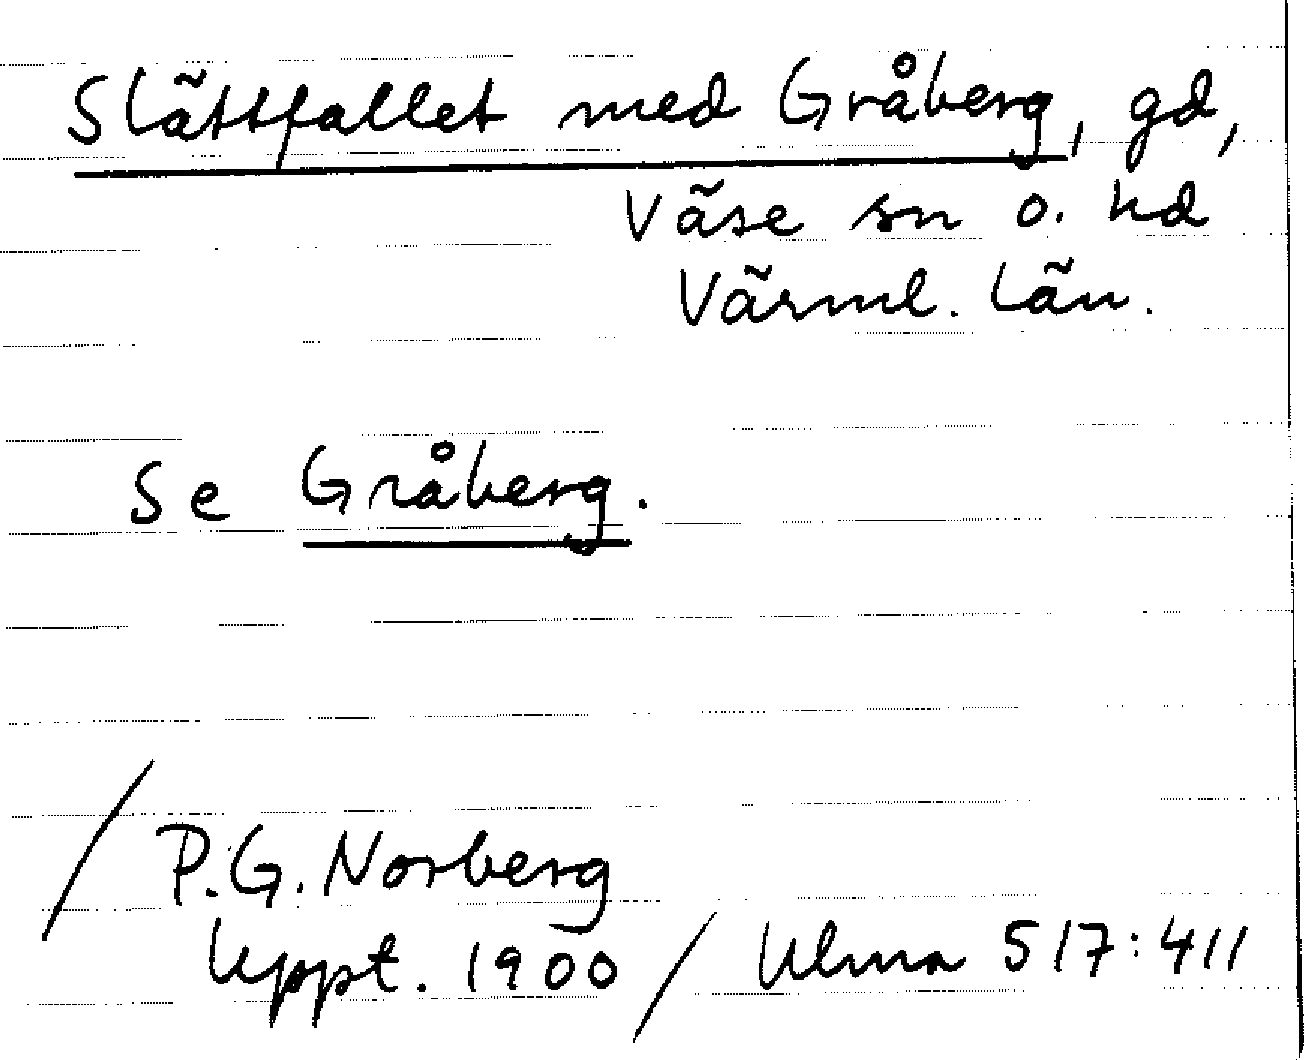 Slättfallet med Gråberg, gd,
Väse sn o. hd
Värml. län.
Se Gråberg.
/ P.G. Norberg
Uppt. 1900 / Ulma 517:411